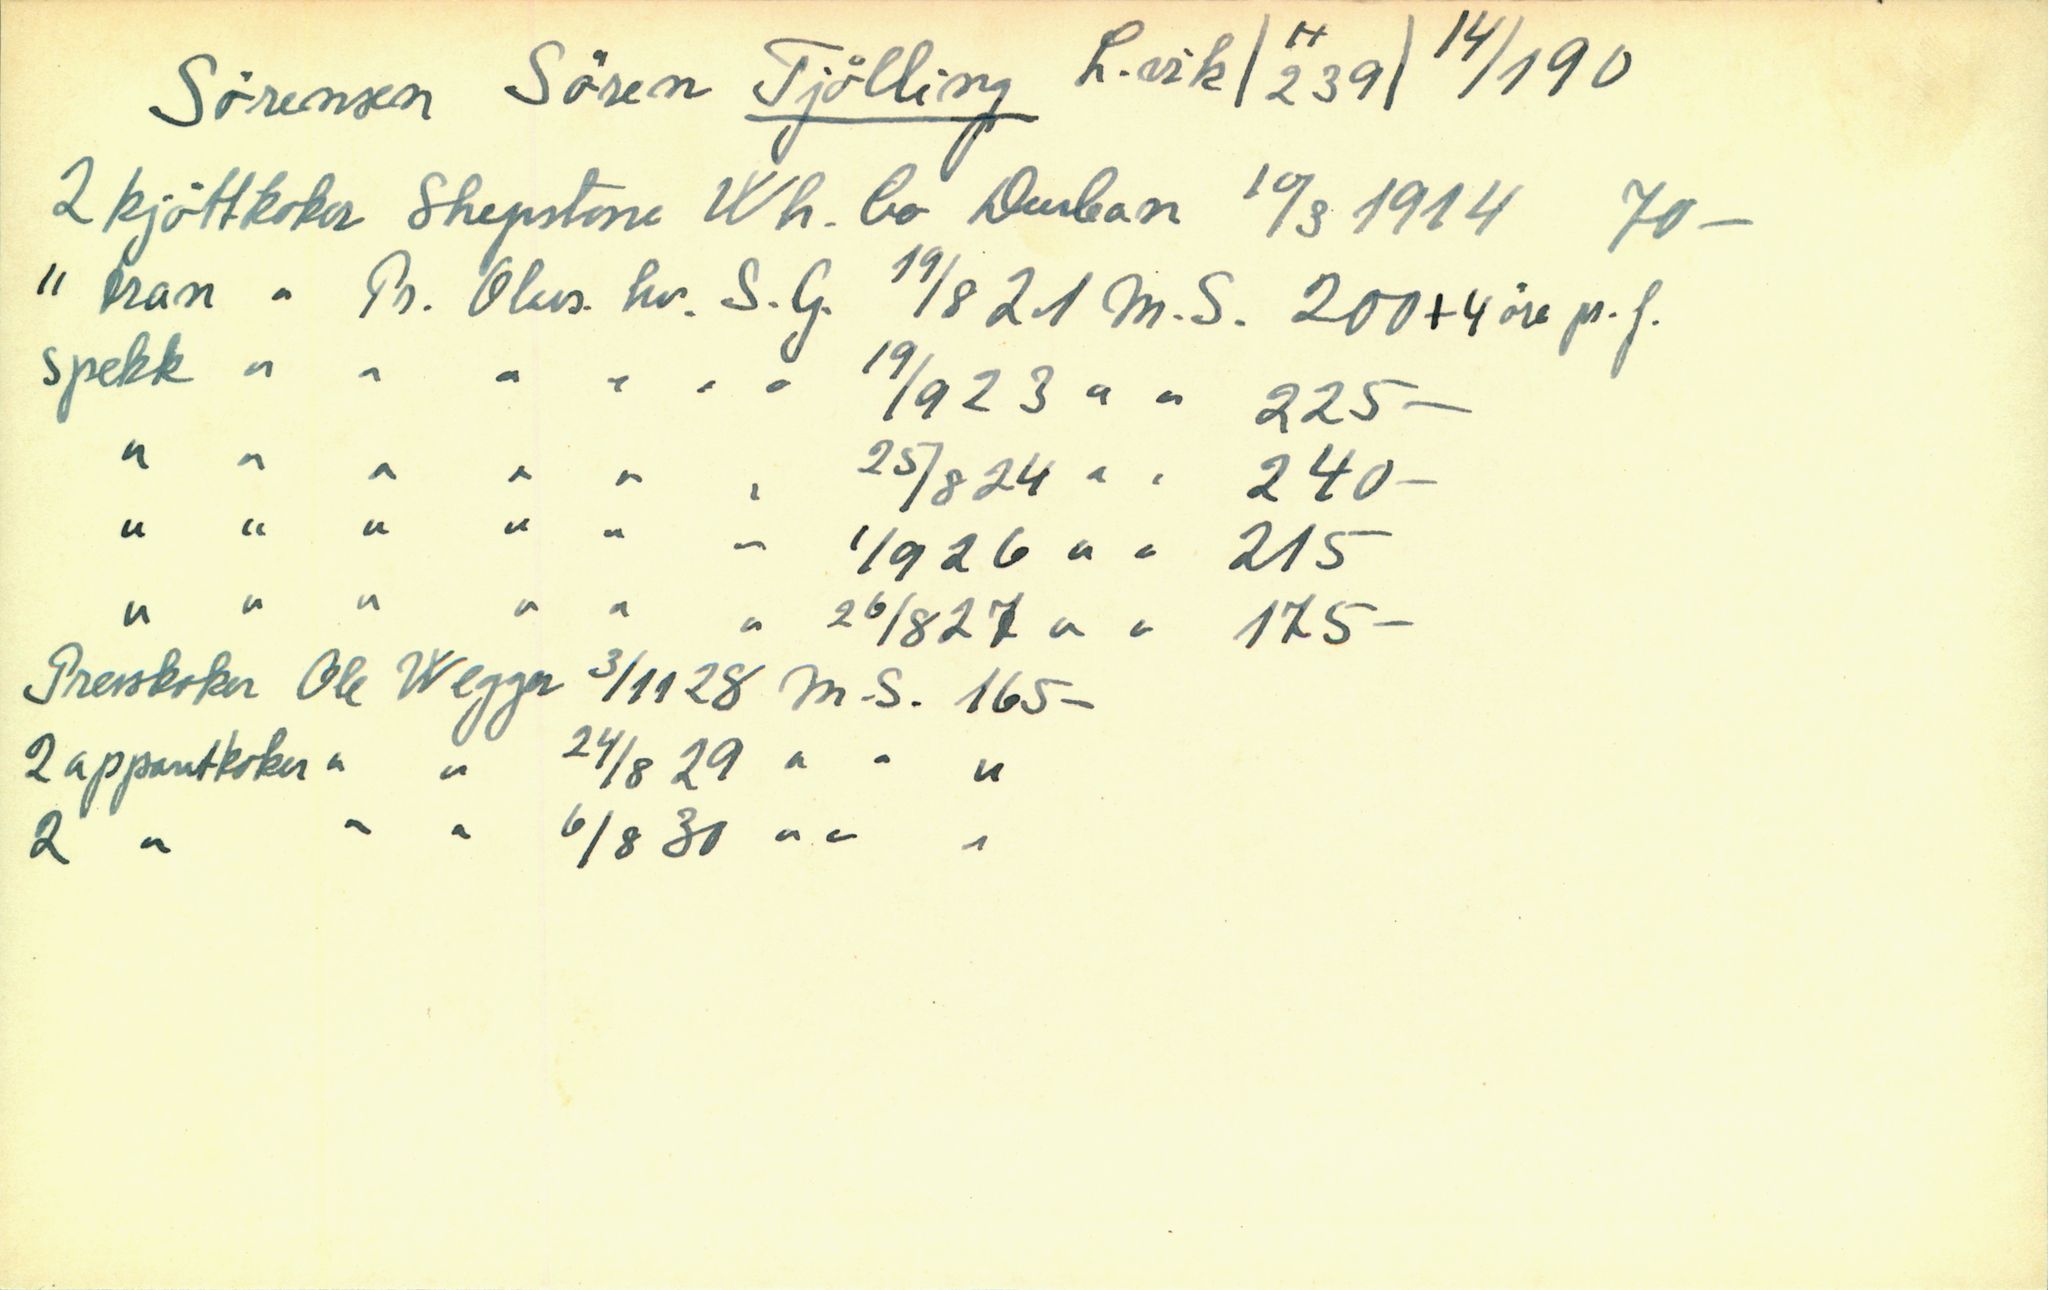 Sörensen Sören Tjölling L.vik | 14 239 | 14/190
2 kjöttkoker Shepstone Wh. Co Durban 10/3 1914 70 —
" tran " Pr. Olav. hv. S. G. 19/8 21 M.S. 200 + 4 öre pr. f.
spekk " " " " " " 19/9 23 " " 225 —
" " " " " " 25/8 24 " " 240 —
" " " " " " 1/9 26 " " 215
" " " " " " 26/8 27 " " 175 —
Presskoker Ole Wegger 3/11 28 M.S. 165 —
2 apparatkoker " " 24/8 29 " " "
2 " " " 6/8 30 " " "